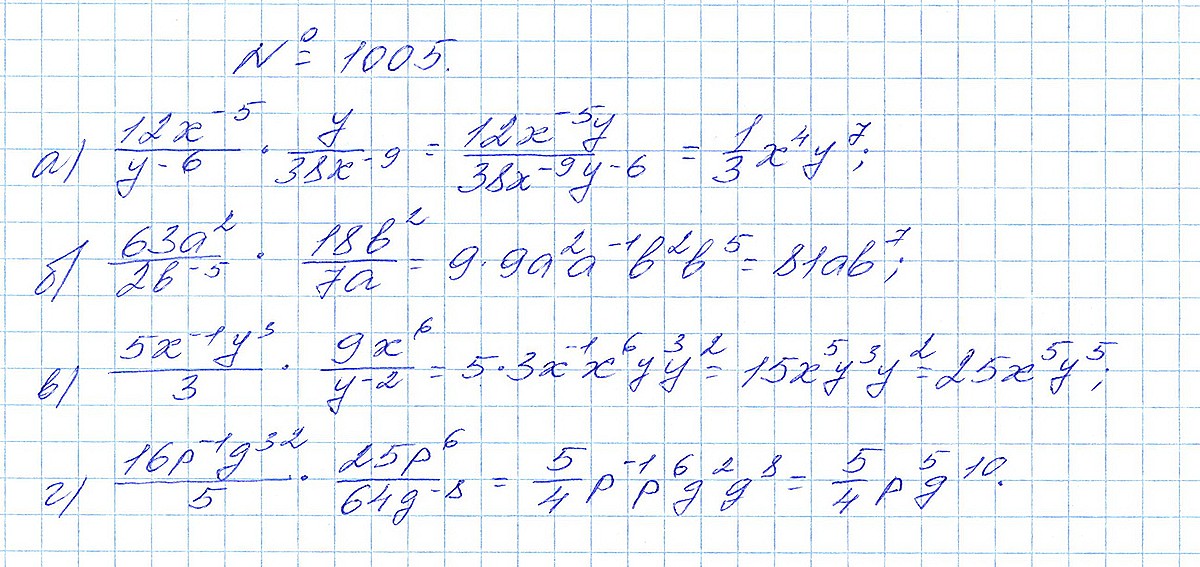 № 1005.
а) 12x⁻⁵/y⁻⁶ · y/38x⁻⁹ = 12x⁻⁵y/38x⁻⁹y⁻⁶ = 1/3 x⁴y⁷;
б) 63a²/2b⁻⁵ · 18b²/7a = 9·9a²a⁻¹b²b⁵ = 81ab⁷;
в) 5x⁻¹y³/3 · 9x⁶/y⁻² = 5·3x⁻¹x⁶y³y² = 15x⁵y³y² = 25x⁵y⁵;
г) 16p⁻¹g³²/5 · 25p⁶/64g⁻⁸ = 5/4 p⁻¹p⁶g²g⁸ = 5/4 p⁵g¹⁰.